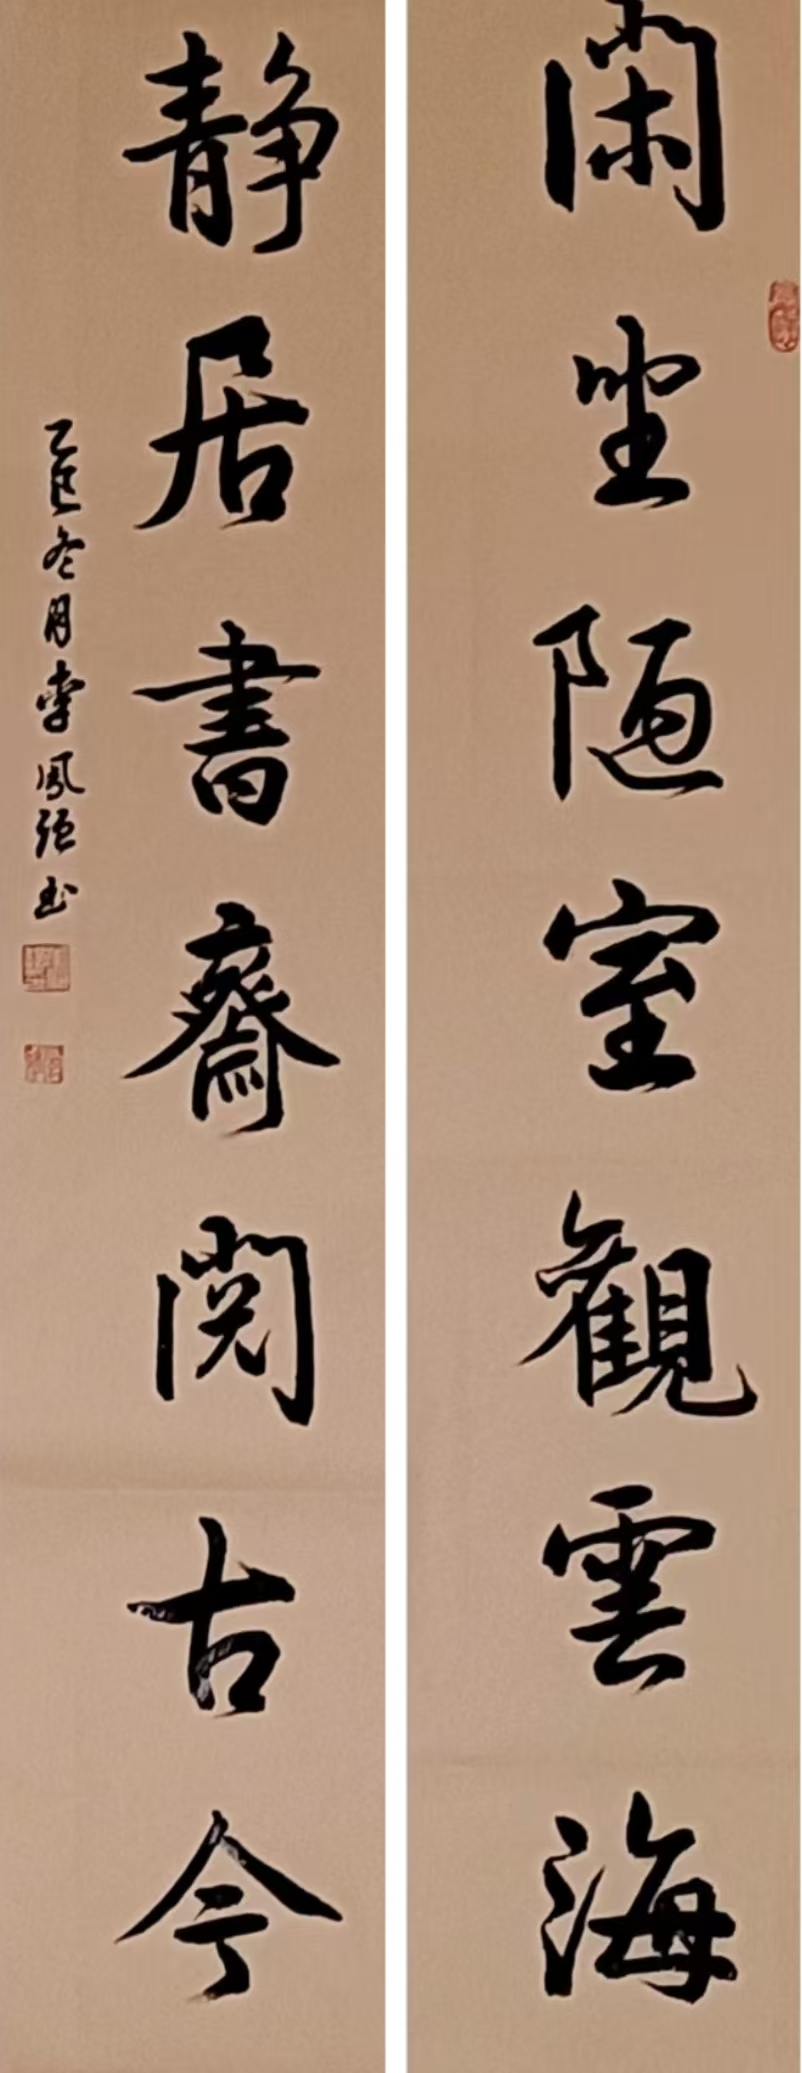 閑坐陋室觀雲海
静居書齋閱古今
乙巳冬月李鳳強书